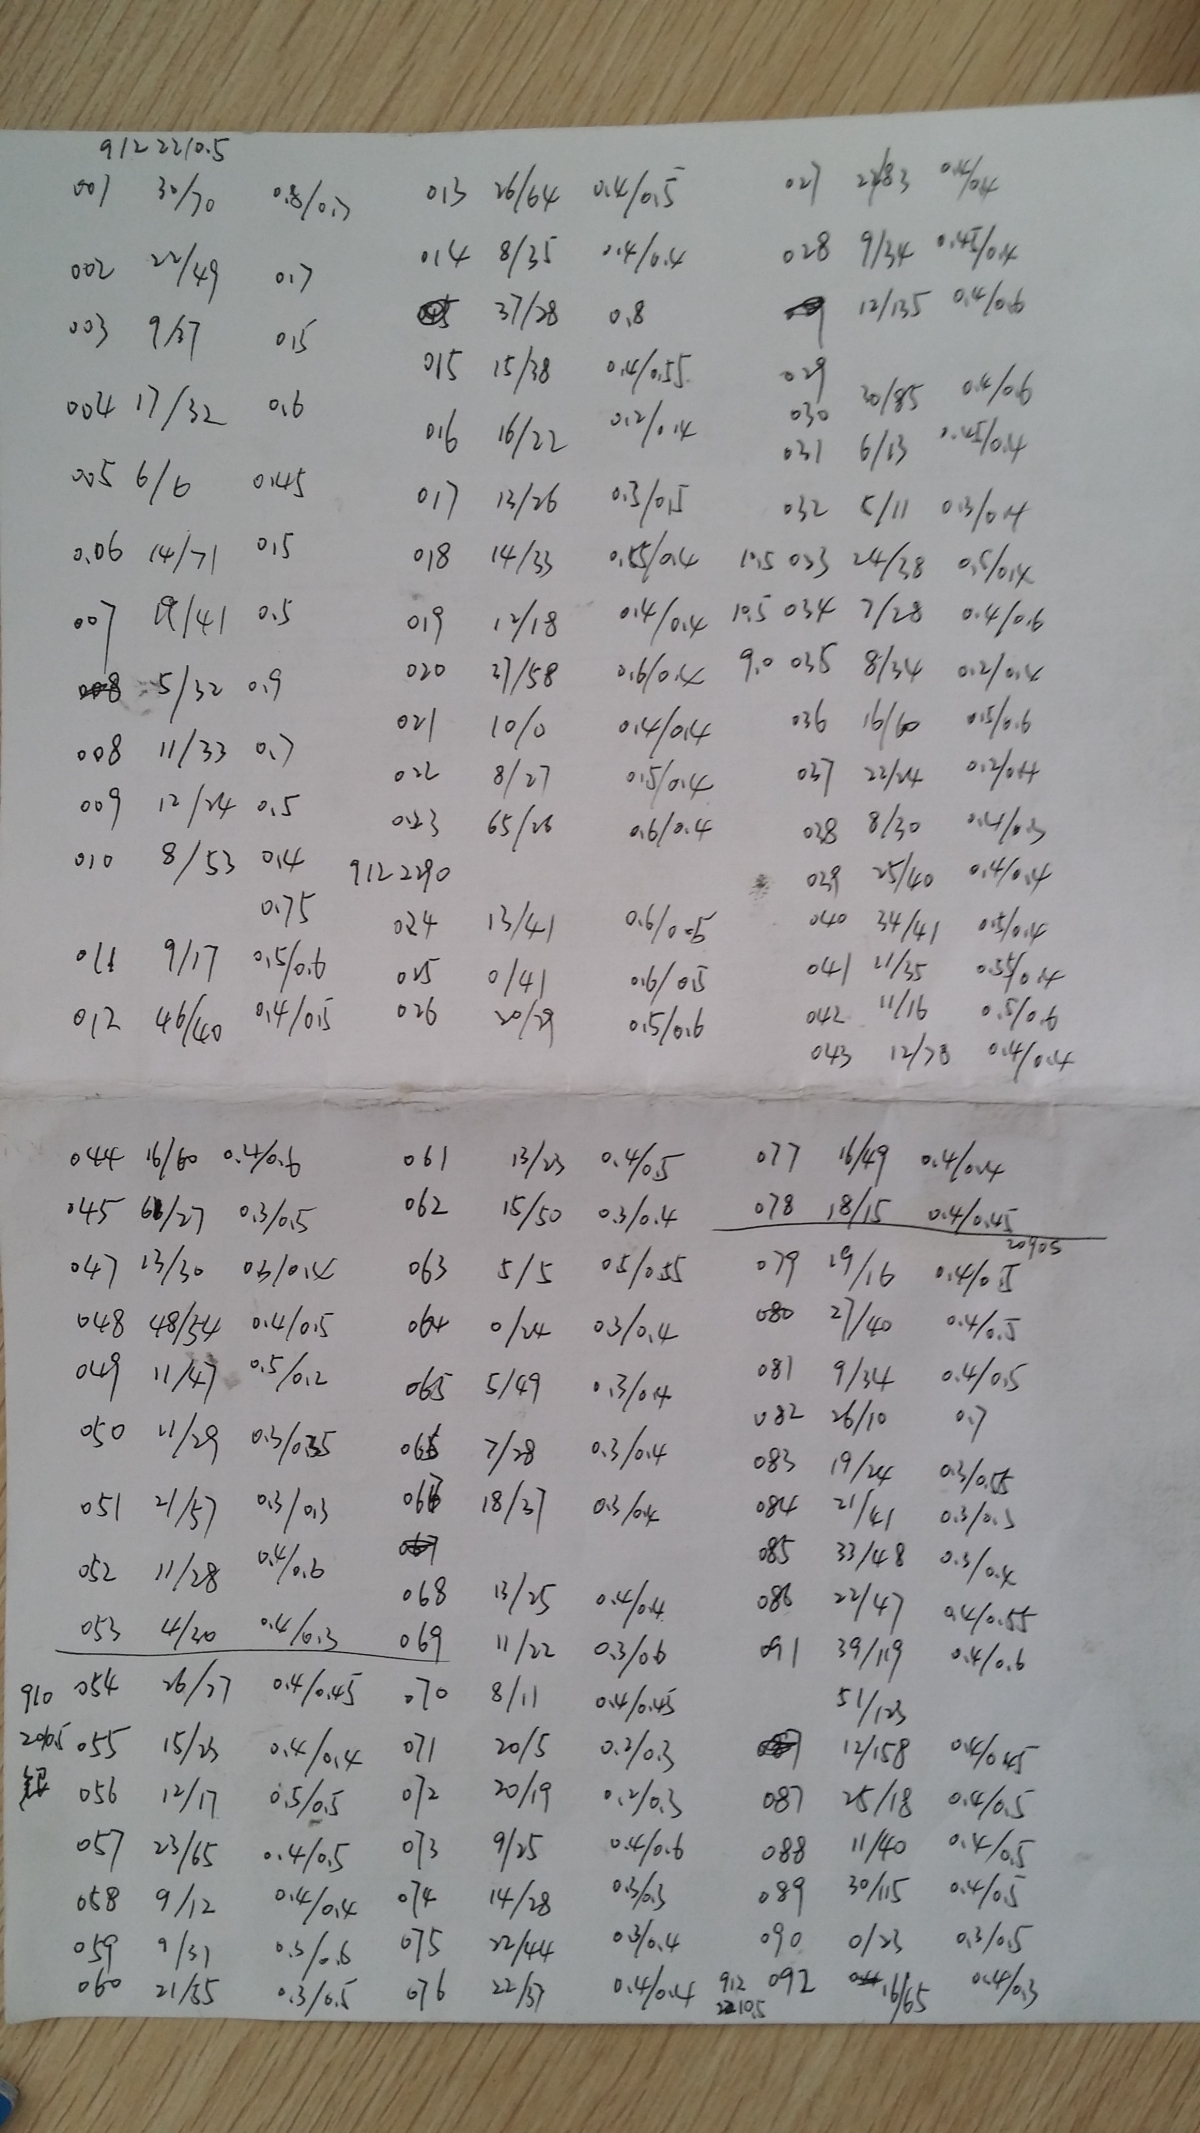 912 22/0.5
001 30/70 0.8/0.7
002 22/49 0.7
003 9/37 0.5
004 17/32 0.6
005 6/6 0.45
0.06 14/71 0.5
007 19/41 0.5
008 5/32 0.9
008 11/33 0.7
009 12/24 0.5
010 8/53 0.4
0.75
011 9/17 0.5/0.6
012 46/40 0.4/0.5
013 26/64 0.4/0.5
014 8/35 0.4/0.4
37/28 0.8
015 15/38 0.4/0.55
016 16/22 0.2/0.4
017 13/26 0.3/0.5
018 14/33 0.55/0.4
019 12/18 0.4/0.4
020 37/58 0.6/0.4
021 10/0 0.4/0.4
022 8/27 0.5/0.4
023 65/26 0.6/0.4
912 2290
024 13/41 0.6/0.5
025 0/41 0.6/0.5
026 20/29 0.5/0.6
027 22/83 0.4/0.4
028 9/34 0.45/0.4
12/135 0.4/0.6
029
030 30/85 0.4/0.6
031 6/13 0.45/0.4
032 5/11 0.3/0.4
10.5 033 24/38 0.5/0.4
10.5 034 7/28 0.4/0.6
9.0 035 8/34 0.2/0.4
036 16/60 0.5/0.6
037 22/24 0.2/0.4
038 8/30 0.4/0.3
039 25/40 0.4/0.4
040 34/41 0.5/0.4
041 11/35 0.55/0.4
042 11/16 0.5/0.6
043 12/78 0.4/0.4
044 16/60 0.4/0.6
045 61/27 0.3/0.5
047 13/30 0.3/0.4
048 48/34 0.4/0.5
049 11/47 0.5/0.2
050 11/29 0.3/0.35
051 21/57 0.3/0.3
052 11/28 0.4/0.6
053 4/30 0.4/0.3
910 054 26/27 0.4/0.45
20/0.5 055 15/23 0.4/0.4
056 12/17 0.5/0.5
057 23/65 0.4/0.5
058 9/12 0.4/0.4
059 9/31 0.3/0.6
060 21/55 0.3/0.5
061 13/23 0.4/0.5
062 15/50 0.3/0.4
063 5/5 0.5/0.55
064 0/24 0.3/0.4
065 5/49 0.3/0.4
066 7/28 0.3/0.4
067 18/37 0.3/0.4
068 13/25 0.4/0.4
069 11/22 0.3/0.6
070 8/11 0.4/0.45
071 20/5 0.2/0.3
072 20/19 0.2/0.3
073 9/25 0.4/0.6
074 14/28 0.3/0.3
075 22/44 0.3/0.4
076 22/37 0.4/0.4
077 16/49 0.4/0.4
078 18/15 0.4/0.45
20905
079 19/16 0.4/0.5
080 27/40 0.4/0.5
081 9/34 0.4/0.5
082 26/10 0.7
083 19/24 0.3/0.55
084 21/41 0.3/0.3
085 33/48 0.3/0.4
086 22/47 0.4/0.55
091 39/119 0.4/0.6
51/123
12/158 0.4/0.45
087 25/18 0.4/0.5
088 11/40 0.4/0.5
089 30/115 0.4/0.5
090 0/23 0.3/0.5
912 092 16/65 0.4/0.3
2210.5